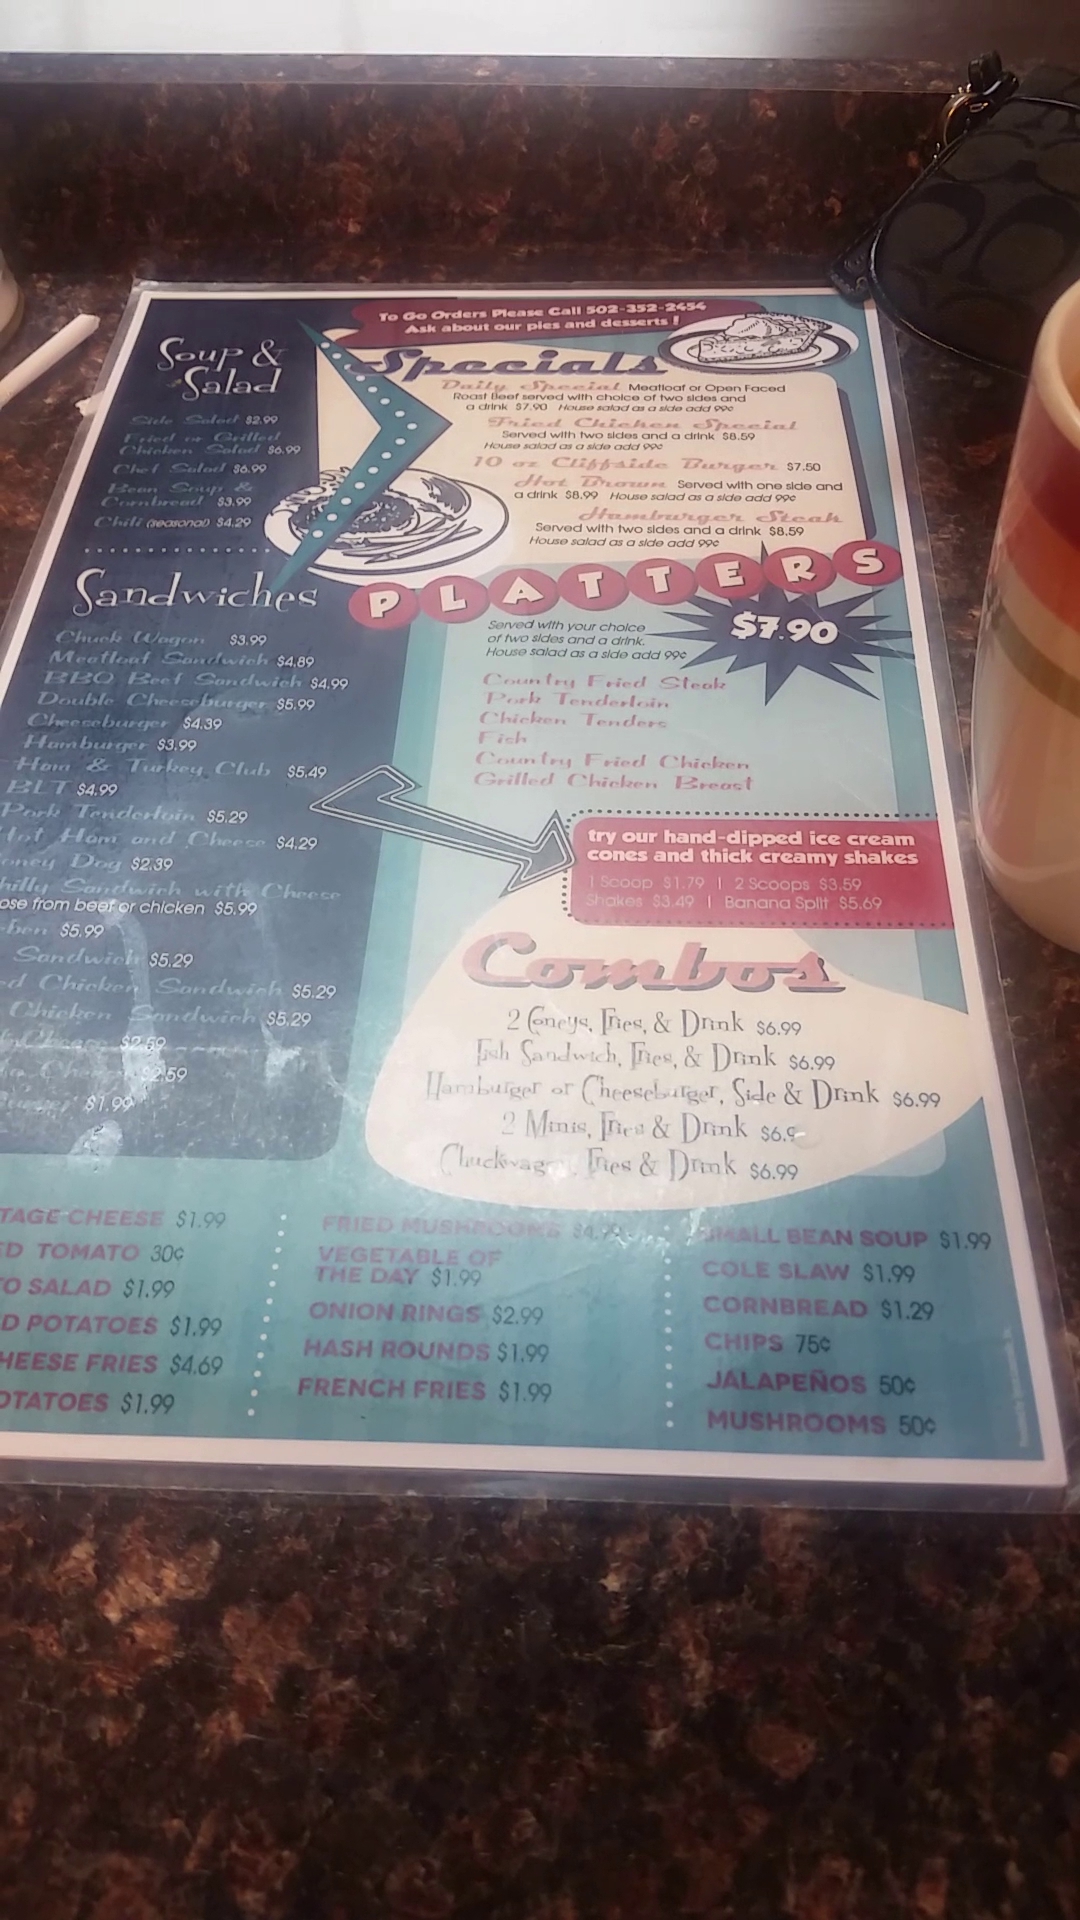 To Go Orders Please Call 502-352-2454
Ask about our pies and desserts !
Soup &
Salad
Side Salad $2.99
Fried or Grilled
Chicken Salad $6.99
Chef Salad $6.99
Bean Soup &
Cornbread $3.99
Chili (seasonal) $4.29
Sandwiches
Chuck Wagon $3.99
Meatloaf Sandwich $4.89
BBQ Beef Sandwich $4.99
Double Cheeseburger $5.99
Cheeseburger $4.39
Hamburger $3.99
Ham & Turkey Club $5.49
BLT $4.99
Pork Tenderloin $5.29
Hot Ham and Cheese $4.29
oney Dog $2.39
hilly Sandwich with Cheese
ose from beef or chicken $5.99
ben $5.99
Sandwich $5.29
ed Chicken Sandwich $5.29
Chicken Sandwich $5.29
Cheese $2.59
Cheese $2.59
$1.99
Specials
Daily Special Meatloaf or Open Faced
Roast Beef served with choice of two sides and
a drink $7.90 House salad as a side add 99¢
Fried Chicken Special
Served with two sides and a drink $8.59
House salad as a side add 99¢
10 oz Cliffside Burger $7.50
Hot Brown Served with one side and
a drink $8.99 House salad as a side add 99¢
Hamburger Steak
Served with two sides and a drink $8.59
House salad as a side add 99¢
PLATTERS
$7.90
Served with your choice
of two sides and a drink.
House salad as a side add 99¢
Country Fried Steak
Pork Tenderloin
Chicken Tenders
Fish
Country Fried Chicken
Grilled Chicken Breast
try our hand-dipped ice cream
cones and thick creamy shakes
1 Scoop $1.79 | 2 Scoops $3.59
Shakes $3.49 | Banana Split $5.69
Combos
2 Coneys, Fries, & Drink $6.99
Fish Sandwich, Fries, & Drink $6.99
Hamburger or Cheeseburger, Side & Drink $6.99
2 Minis, Fries & Drink $6.9
Chuckwag Fries & Drink $6.99
TAGE CHEESE $1.99
ED TOMATO 30¢
TO SALAD $1.99
D POTATOES $1.99
HEESE FRIES $4.69
OTATOES $1.99
FRIED MUSHROOMS $4.99
VEGETABLE OF
THE DAY $1.99
ONION RINGS $2.99
HASH ROUNDS $1.99
FRENCH FRIES $1.99
SMALL BEAN SOUP $1.99
COLE SLAW $1.99
CORNBREAD $1.29
CHIPS 75¢
JALAPEÑOS 50¢
MUSHROOMS 50¢